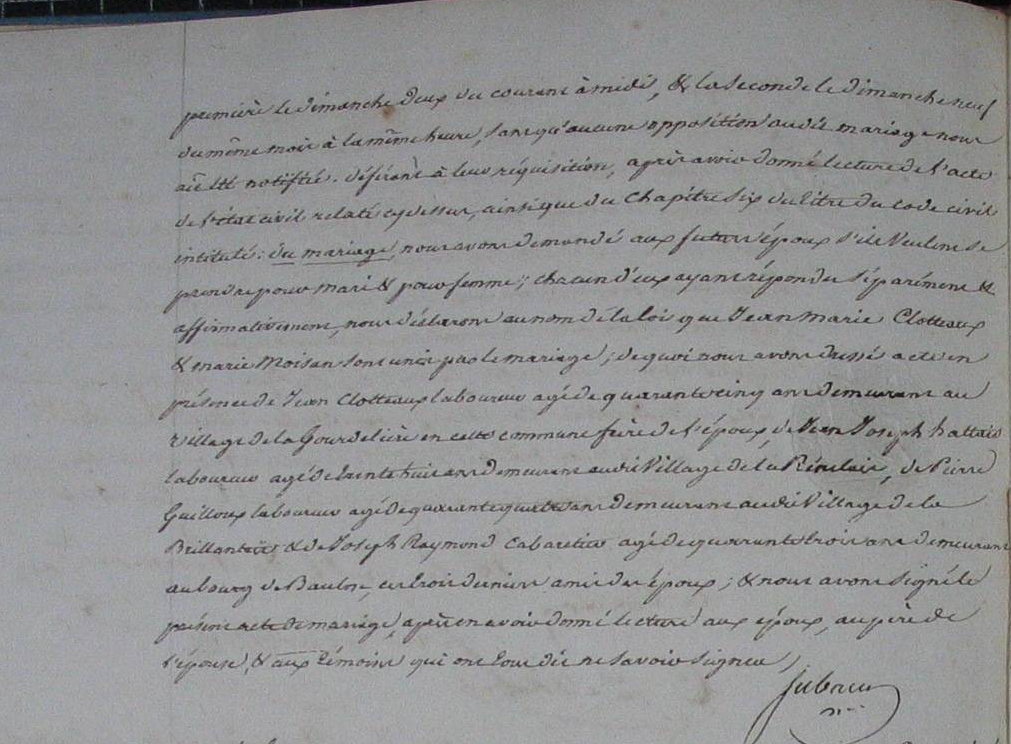 première le dimanche deux du courant à midi, & la seconde le dimanche neuf
du même mois à la même heure, sans qu'aucune opposition audit mariage nous
ait été notifiée. déférant à leur réquisition, après avoir donné lecture de l'acte
de l'état civil relaté cy dessus, ainsi que du Chapitre six du titre du code civil
intitulé : du mariage, nous avons demandé aux futurs époux s'ils veulent se
prendre pour mari & pour femme ; chacun d'eux ayant répondu séparément &
affirmativement, nous déclarons au nom de la loi que Jean Marie Clotteaux
& marie Moisan sont unis par le mariage ; de quoi nous avons dressé acte en
présence de Jean Clotteaux laboureur agé de quarante cinq ans demeurant au
village de la Gourdelière en cette commune frère de l'époux, de Jean Joseph hattais
laboureur agé de trente huit ans demeurant audit Village de la, de Pierre
Guilloux laboureur agé de quarante quatre ans demeurant audit Village de la
Brillantais & de Joseph Raymond Cabaretier agé de quarante trois ans demeurant
au bourg de Baulon, ces trois derniers amis des époux ; & nous avons signé le
présent acte de mariage, après en avoir donné lecture aux époux, au père de
l'épouse, & aux témoins qui ont tous dit ne savoir signer,